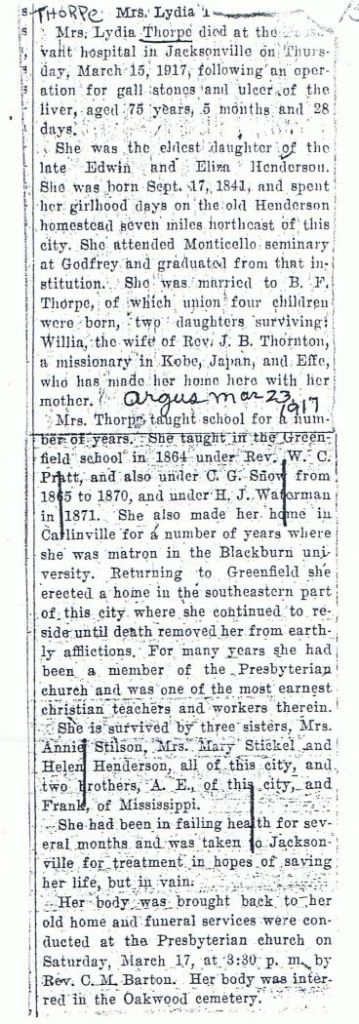 THORPE Mrs. Lydia
Mrs. Lydia Thorpe died at the
vant hospital in Jacksonville on Thurs-
day, March 15, 1917, following an oper-
ation for gall stones and ulcer of the
liver, aged 75 years, 5 months and 28
days.
She was the eldest daughter of the
late Edwin and Eliza Henderson.
She was born Sept. 17, 1841, and spent
her girlhood days on the old Henderson
homestead seven miles northeast of this
city. She attended Monticello seminary
at Godfrey and graduated from that in-
stitution. She was married to B. F.
Thorpe, of which union four children
were born, two daughters surviving:
Willia, the wife of Rev. J. B. Thornton,
a missionary in Kobe, Japan, and Effe,
who has made her home here with her
mother. Argus Mar 23, 1917
Mrs. Thorpe taught school for a num-
ber of years. She taught in the Green-
field school in 1864 under Rev. W. C.
Pratt, and also under C. G. Snow from
1865 to 1870, and under H. J. Waterman
in 1871. She also made her home in
Carlinville for a number of years where
she was matron in the Blackburn uni-
versity. Returning to Greenfield she
erected a home in the southeastern part
of this city where she continued to re-
side until death removed her from earth-
ly afflictions. For many years she had
been a member of the Presbyterian
church and was one of the most earnest
christian teachers and workers therein.
She is survived by three sisters, Mrs.
Annie Stilson, Mrs. Mary Stickel and
Helen Henderson, all of this city, and
two brothers, A. E., of this city, and
Frank, of Mississippi.
She had been in failing health for sev-
eral months and was taken to Jackson-
ville for treatment in hopes of saving
her life, but in vain.
Her body was brought back to her
old home and funeral services were con-
ducted at the Presbyterian church on
Saturday, March 17, at 3:30 p. m. by
Rev. C. M. Barton. Her body was inter-
red in the Oakwood cemetery.